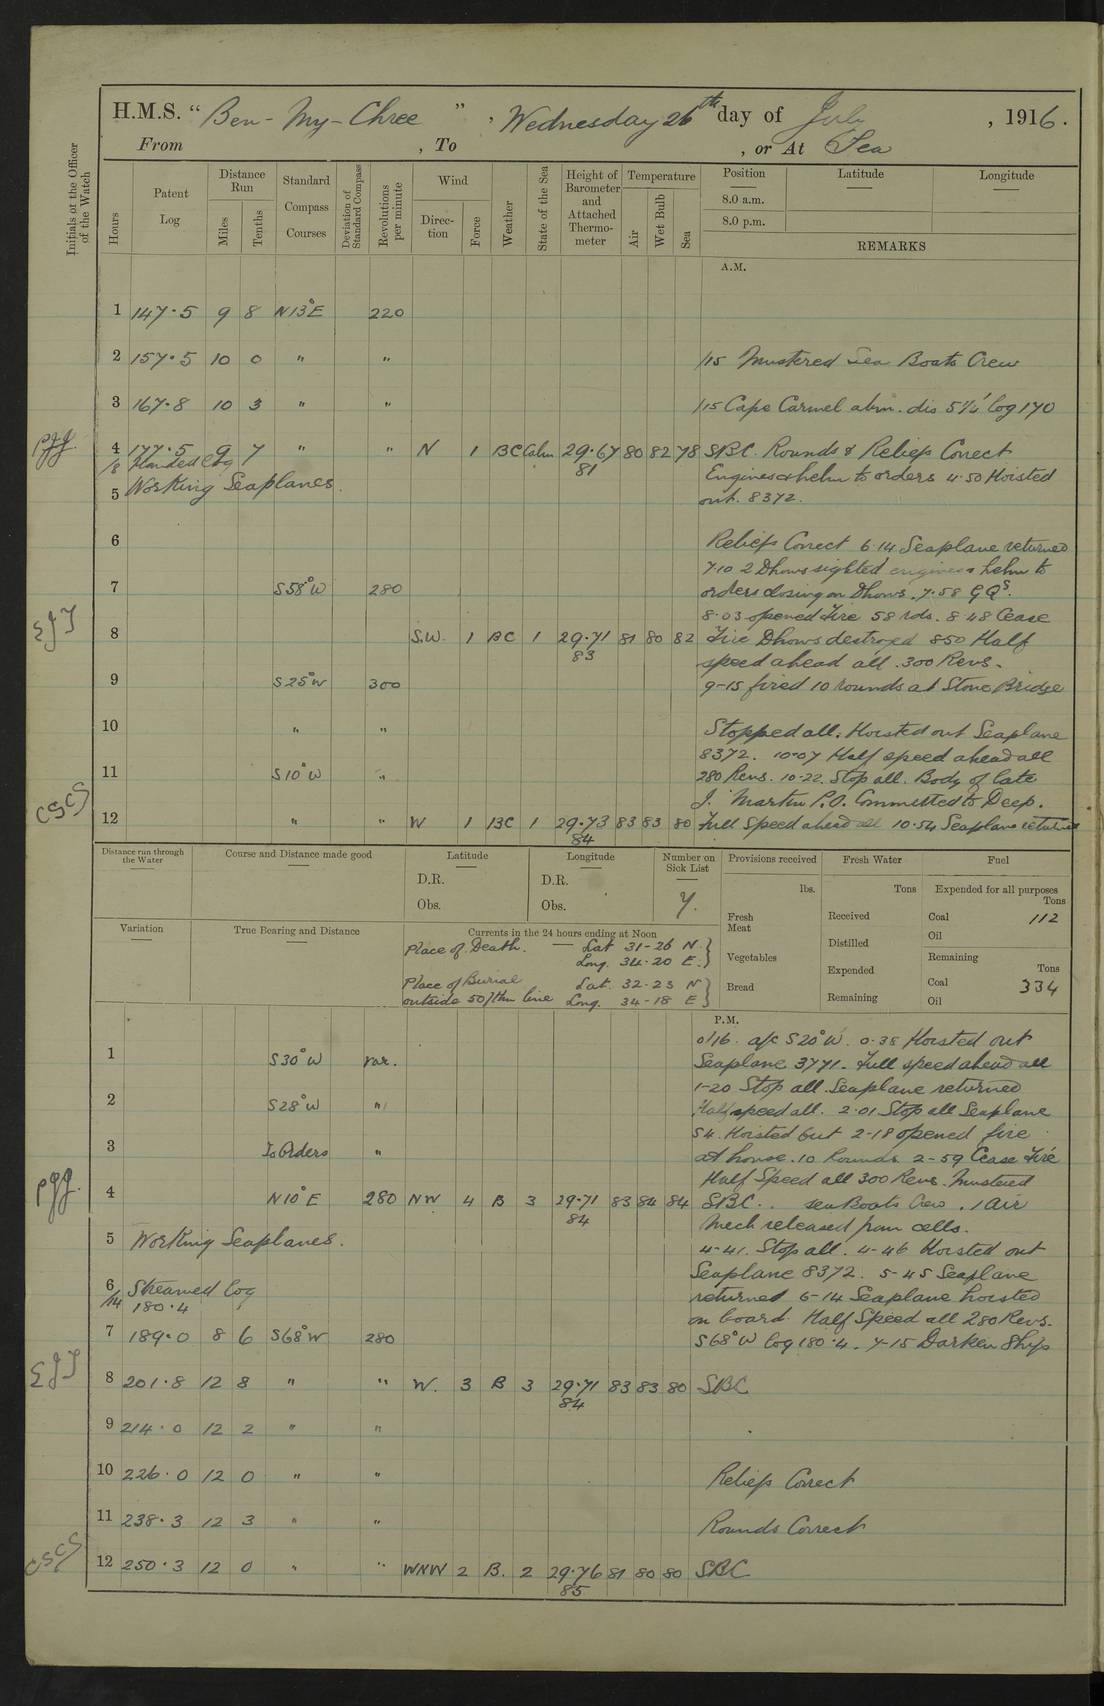 H.M.S. “Ben-My-Chree”, Wednesday 26th day of July, 1916.
From , To , or At Sea
Initials of the Officer of the Watch
Hours Patent Log Distance Run Miles Tenths Standard Compass Courses Deviation of Standard Compass Revolutions per minute Wind Direction Force Weather State of the Sea Height of Barometer and Attached Thermometer Temperature Air Wet Bulb Sea Position Latitude Longitude
8.0 a.m.
8.0 p.m.
REMARKS
A.M.
1 147.5 9 8 N13°E 220
2 157.5 10 0 " " 1/15 Mustered Sea Boats Crew
3 167.8 10 3 " " 1/15 Cape Carmel abm. dis 5¼' log 170
PJJ. 4 177.5 9 7 " " N 1 BC Calm 29.67 80 82 78 SBC. Rounds & Reliefs Correct
81
/8 Handed log Engines & helm to orders 4.50 Hoisted
5 Working Seaplanes. out. 8372.
6 Reliefs Correct 6.14 Seaplane returned
7.10 2 Dhows sighted engines & helm to
7 S58°W 280 orders closing on Dhows. 7.58 GQs.
8.03 opened Fire 58 rds. 8 48 Cease
EJT 8 SW. 1 BC 1 29.71 81 80 82 Fire Dhows destroyed 850 Half
83 speed ahead all .300 Revs.
9 S25°W 300 9-15 fired 10 rounds at Stone Bridge
10 " " Stopped all. Hoisted out Seaplane
8372. 10.07 Half speed ahead all
11 S10°W " 280 Revs. 10-22. Stop all. Body of late
J. Martin P.O. Committed to Deep.
CSCS 12 " " W 1 BC 1 29.73 83 83 80 Full Speed ahead all 10.54 Seaplane returned
84
Distance run through the Water Course and Distance made good Latitude Longitude Number on Sick List Provisions received Fresh Water Fuel
D.R. D.R. lbs. Tons Expended for all purposes Tons
Obs. Obs. 7. Fresh Meat Received Coal 112
Variation True Bearing and Distance Currents in the 24 hours ending at Noon Distilled Oil
Place of Death. — Lat 31-26 N. Vegetables Remaining
Long. 34-20 E. Expended Tons
Place of Burial Lat. 32-23 N Bread Coal 334
outside 50/thm line Long. 34-18 E Remaining Oil
P.M.
0/16. a/c S20°W. 0.38 Hoisted out
1 S30°W var. Seaplane 3771. Full speed ahead all
1-20 Stop all. Seaplane returned
2 S28°W " Half speed all. 2.01 Stop all Seaplane
54. Hoisted out 2-18 opened fire
3 To Orders " at house. 10 Rounds 2-59 Cease Fire
Half Speed all 300 Revs. Mustered
PJJ. 4 N10°E 280 NW 4 B 3 29.71 83 84 84 SBC.. sea Boats Crew. 1 Air
84 Mech released from cells.
5 Working Seaplanes. 4-41. Stop all. 4-46 Hoisted out
Seaplane 8372. 5-45 Seaplane
6 Streamed log returned 6-14 Seaplane hoisted
/14 180.4 on board. Half Speed all 280 Revs.
7 189.0 8 6 S68°W 280 S68°W log 180.4. 7-15 Darken Ship
EJT 8 201.8 12 8 " " W. 3 B 3 29.71 83 83 80 SBC
84
9 214.0 12 2 " "
10 226.0 12 0 " " Reliefs Correct
11 238.3 12 3 " " Rounds Correct
CSCS 12 250.3 12 0 " " WNW 2 B. 2 29.76 81 80 80 SBC
85